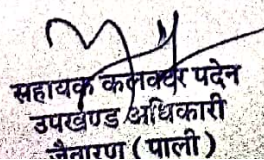 सहायक कलक्टर पदेन
उपखण्ड अधिकारी
जैतारण (पाली)